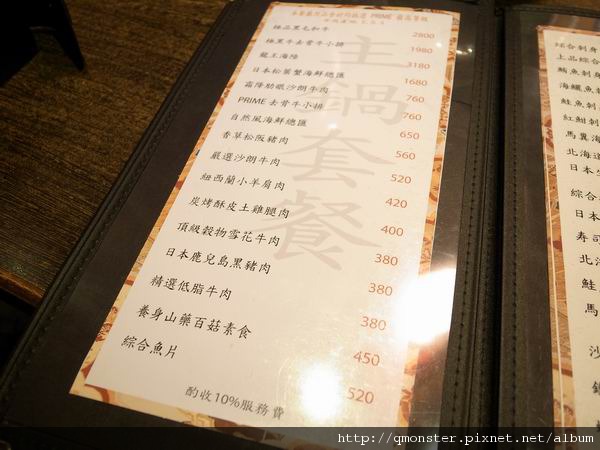 主鍋套餐
極品黑毛和牛 2800
極黑牛去骨牛小排 1980
龍王海陸 3180
日本松葉蟹海鮮總匯 1680
霜降肋眼沙朗牛肉 760
PRIME去骨牛小排 760
自然風海鮮總匯 650
香草松阪豬肉 560
嚴選沙朗牛肉 520
紐西蘭小羊肩肉 420
炭烤酥皮土雞腿肉 400
頂級穀物雪花牛肉 380
日本鹿兒島黑豬肉 380
精選低脂牛肉 380
養身山藥百菇素食 450
綜合魚片 520
酌收10%服務費
綜合刺身
上品綜合
鮪魚刺身
海鱺魚
鮭魚刺
紅魽刺
馬翼海
北海道
日本生
綜合
日本
壽司
北海
鮭
馬
沙
http://qmonster.pixnet.net/album